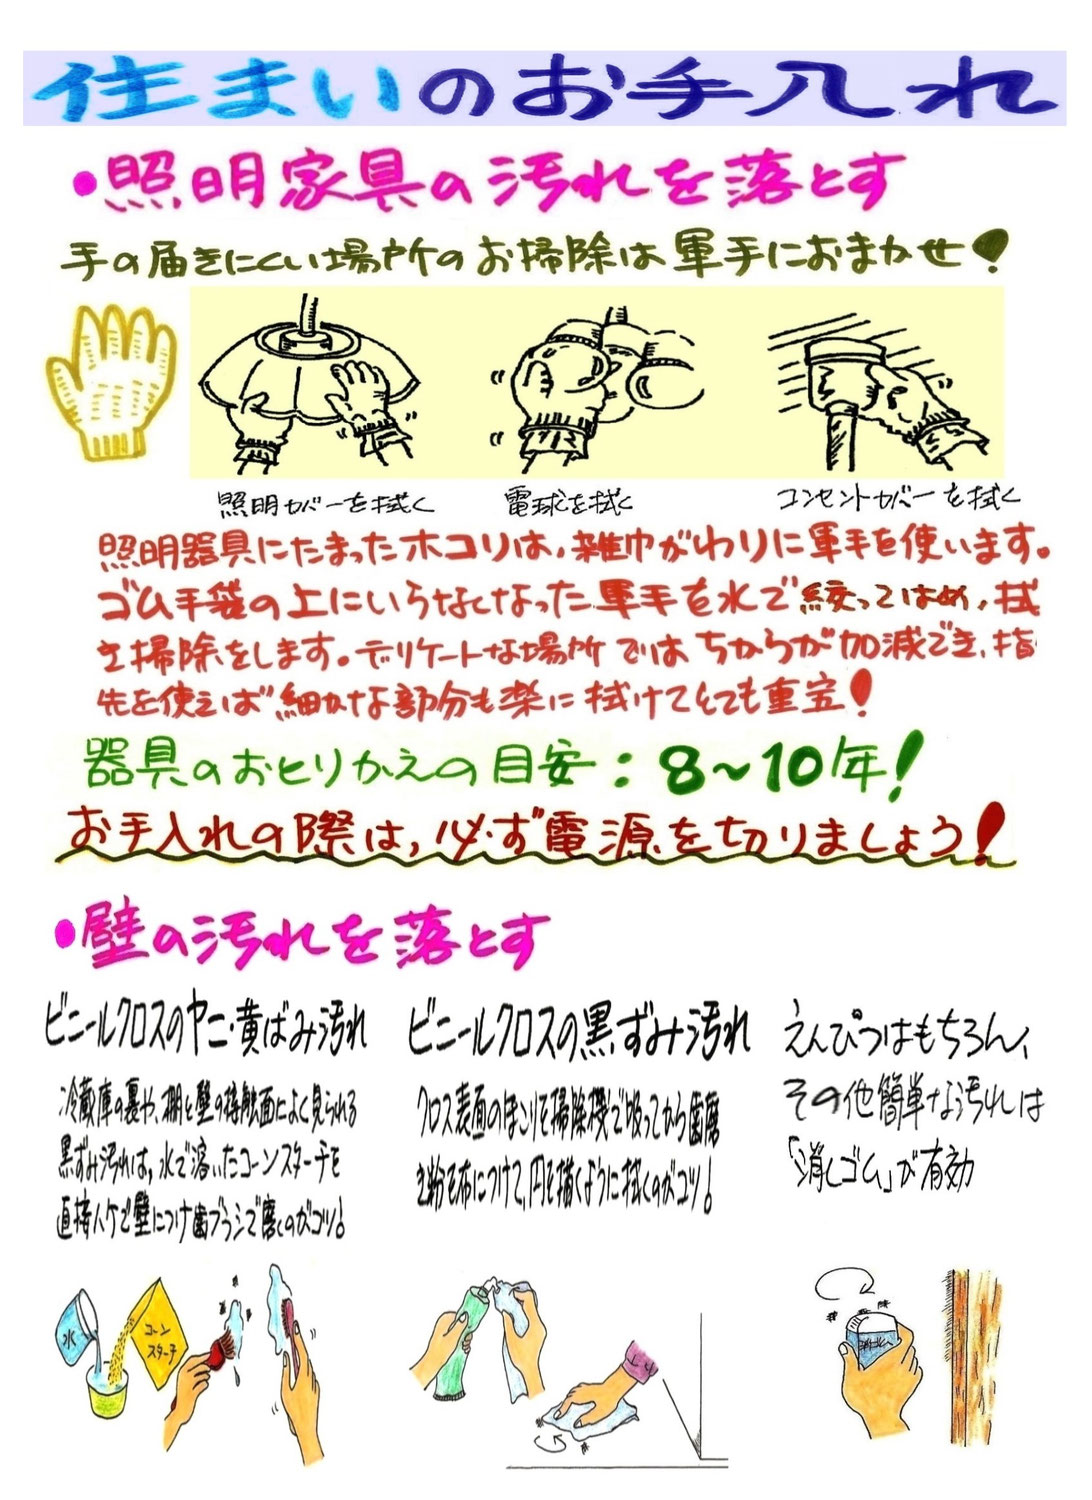 住まいのお手入れ
・照明家具の汚れを落とす
手の届きにくい場所のお掃除は軍手におまかせ!
照明カバーを拭く
電球を拭く
コンセントカバーを拭く
照明器具にたまったホコリは、雑巾がわりに軍手を使います。
ゴム手袋の上にいらなくなった軍手を水で絞ってはめ、拭
き掃除をします。デリケートな場所ではちからが加減でき、指
先を使えば細かな部分も楽に拭けてとても重宝!
器具のおとりかえの目安:8~10年!
お手入れの際は、必ず電源を切りましょう!
・壁の汚れを落とす
ビニールクロスのヤニ・黄ばみ汚れ
冷蔵庫の裏や、棚と壁の接触面によく見られる
黒ずみ汚れは、水で溶いたコーンスターチを
直接ハケで壁につけ歯ブラシで磨くのがコツ!
水
コーン
スターチ
ビニールクロスの黒ずみ汚れ
クロス表面のほこりを掃除機で吸ってから歯磨
き粉を布につけて、円を描くように拭くのがコツ!
えんぴつはもちろん、
その他簡単な汚れは
「消しゴム」が有効